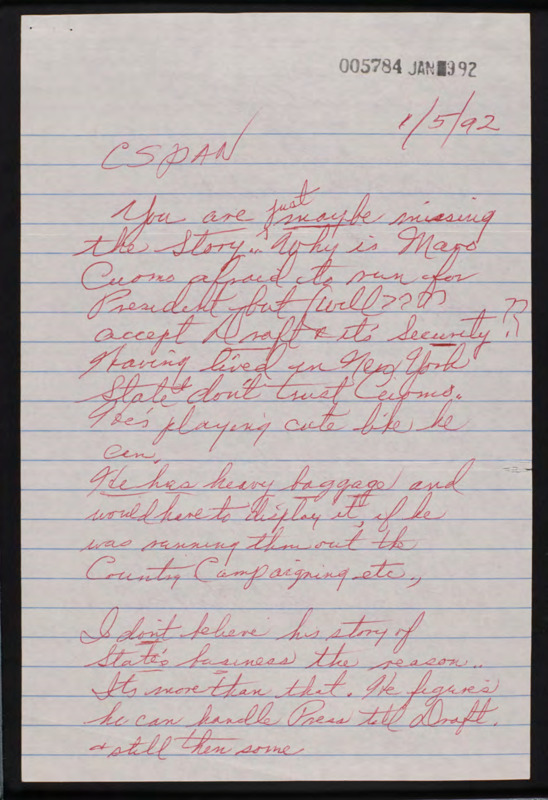 005784 JAN 9 92
1/5/92
CSPAN
You are just maybe missing
the Story.. Why is Mario
Cuomo afraid to run for
President but (will????
accept Draft & it's Security??
Having lived in New York
State I don't trust Cuomo..
He's playing cute like he
can.
He has heavy baggage and
would have to display it, if he
was running thru out the
Country Campaigning etc.,
I don't believe his story of
State's business the reason..
Its more than that. He figures
he can handle Press till Draft.
& still then some